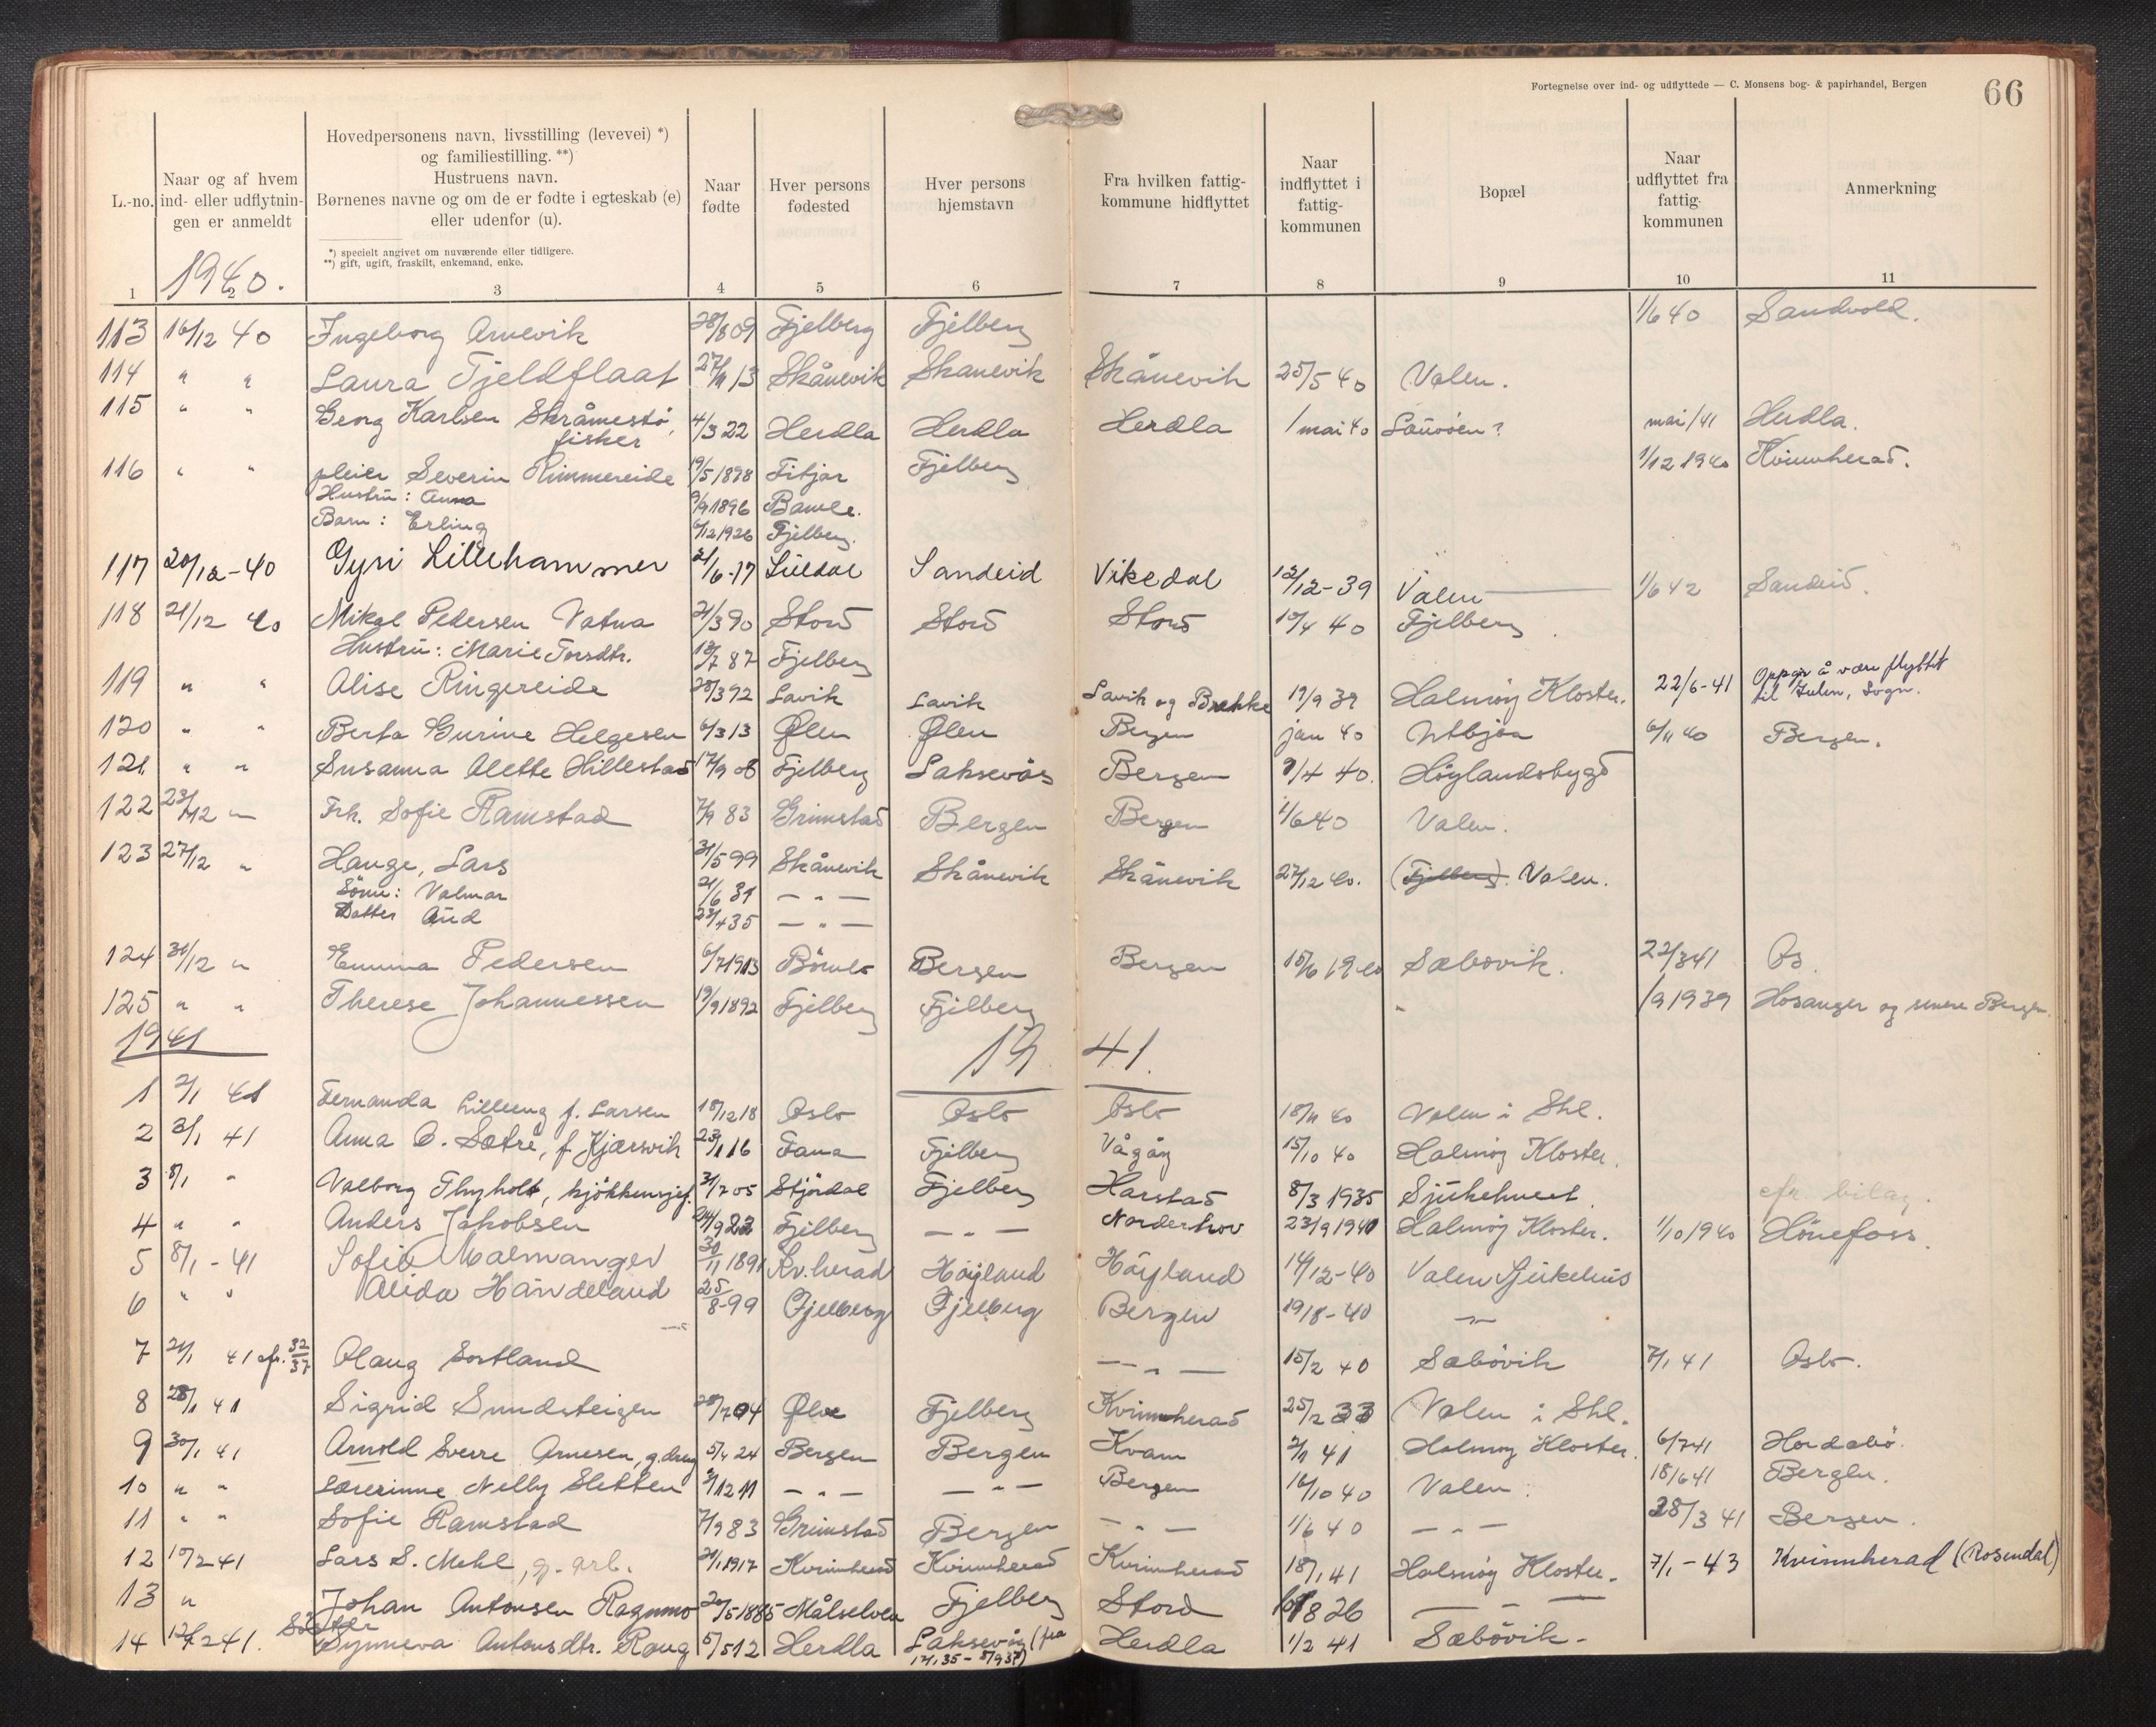 Fortegnelse over ind- og udflyttede — C. Monsens bog- & papirhandel, Bergen
66
L.-no.
Naar og af hvem ind- eller udflytnin-gen er anmeldt
Hovedpersonens navn, livsstilling (levevei) *)
og familiestilling. **)
Hustruens navn.
Børnenes navne og om de er fødte i egteskab (e)
eller udenfor (u).
*) specielt angivet om nuværende eller tidligere.
**) gift, ugift, fraskilt, enkemand, enke.
Naar fødte
Hver persons fødested
Hver persons hjemstavn
Fra hvilken fattig-kommune hidflyttet
Naar indflyttet i fattig-kommunen
Bopæl
Naar udflyttet fra fattig-kommunen
Anmerkning
1940.
1 2 3 4 5 6 7 8 9 10 11
113 16/12 40 Ingeborg Arnevik 28/8 09 Fjelberg Fjelberg 1/6 40 Sandvold.
114 " " Laura Tjeldflaat 27/11 13 Skånevik Skånevik Skånevik 25/5 40 Valen.
115 " " Georg Karlsen Skråmestø, 4/3 22 Herdla Herdla Herdla 1 mai 40 mai/41 Herdla.
fisker
116 " " pleier Severin Rimmereide 19/5 1898 Fitjar Fjelberg 1/12 1940 Kvinnherad.
Hustru: Anna 9/9 1896 Bamle.
Barn: Erling 6/12 1926 Fjelberg.
117 20/12-40 Gyri Lillehammer 21/6-17 Suldal Sandeid Vikedal 12/12-39 Valen 1/6 42 Sandeid.
118 21/12 40 Mikal Pedersen Vatna 21/3 90 Stord Stord Stord 10/4 40 Fjelberg.
Hustru: Marie Torsdtr. 13/7 87 Fjelberg
119 " " Alise Ringereide 28/3 92 Lavik Lavik Lavik og Brekke 19/9 39 Halsnøy Kloster. 22/6-41 Oppgir å være flyttet
til Gulen, Sogn.
120 " " Berta Gurine Helgesen 6/3 13 Ølen Ølen Bergen jan 40 Utbjoa 6/11 40 Bergen.
121 " " Susanna Alette Hillestad 17/9 08 Fjelberg Laksevåg Bergen 9/4 40. Høylandsbygd
122 23/12 " Frk. Sofie Ramstad 7/9 83 Grimstad Bergen Bergen 1/6 40 Valen.
123 27/12 " Hauge, Lars 31/5 99 Skånevik Skånevik Skånevik 27/12 40. (Fjelberg). Valen.
Sönn: Valmar 21/6 31 — " —
Datter Aud 23/4 35 — " —
124 31/12 " Emma Pedersen 6/7 1913 Bömlo Bergen Bergen 15/6 1940 Sæbøvik. 22/3 41 Os.
125 " " Therese Johannessen 19/9 1892 Fjelberg Fjelberg " /9 1939 Hosanger og senere Bergen.
1941
1941.
1 2/1 41 Fernanda Lilleeng f. Larsen 18/12 18 Oslo Oslo Oslo 18/11 40 Valen i Shl.
2 3/1 41 Anna O. Sætre, f. Kjærsvik 23/1 16 Fana Fjelberg Vågåy 15/10 40 Halsnøy Kloster.
3 8/1 " Valborg Thyholt, kjøkkensjef. 31/7 05 Stjördal Fjelberg Harstad 8/3 1935 Sjukehuset cfr. bilag.
4 " " Anders Jakobsen 24/9 22 Fjelberg — " — Norderhov 23/9 1940 Halsnøy Kloster. 1/10 1940 Hönefoss.
5 8/1-41 Sofie Malmanger 30/11 1891 Kv.herad Höyland Höyland 14/12-40 Valen Sjukehus
6 " " Alida Handeland 25/8-99 Fjelberg Fjelberg Bergen 19/8-40 — " —
7 21/1 41 cfr. 32/37 Olaug Sortland — " — 15/2 40 Sæbövik 7/1 41 Oslo.
8 28/1 41 Sigrid Sundsteigen 28/7 04 Ølve Fjelberg Kvinnherad 25/2 33 Valen i Shl.
9 30/1 41 Arnold Sverre Arnesen, g.dreng 5/4 24 Bergen Bergen Kvam 2/1 41 Halsnøy Kloster. 6/7 41 Hordabö.
10 " " Lærerinne Nelly Sletten 3/12 11 — " — — " — Bergen 16/10 40 Valen. 18/6 41 Bergen.
11 " " Sofie Ramstad 7/9 83 Grimstad Bergen — " — 1/6 40 — " — 28/3 41 Bergen.
12 10/2 41 Lars S. Mehl, g. arb. 21/1 1917 Kvinnherad Kvinnherad Kvinnherad 18/1 41 Halsnøy Kloster. 7/1-43 Kvinnherad (Rosendal)
13 " Johan Antonsen Ragnmo 20/5 1885 Målselven Fjelberg Stord 8 26 — " —
Söster
14 12/2 41. Synneva Antonsdtr. Raug 5/5 12 Herdla Laksevåg (fra Herdla 1/2 41 Sæbövik.